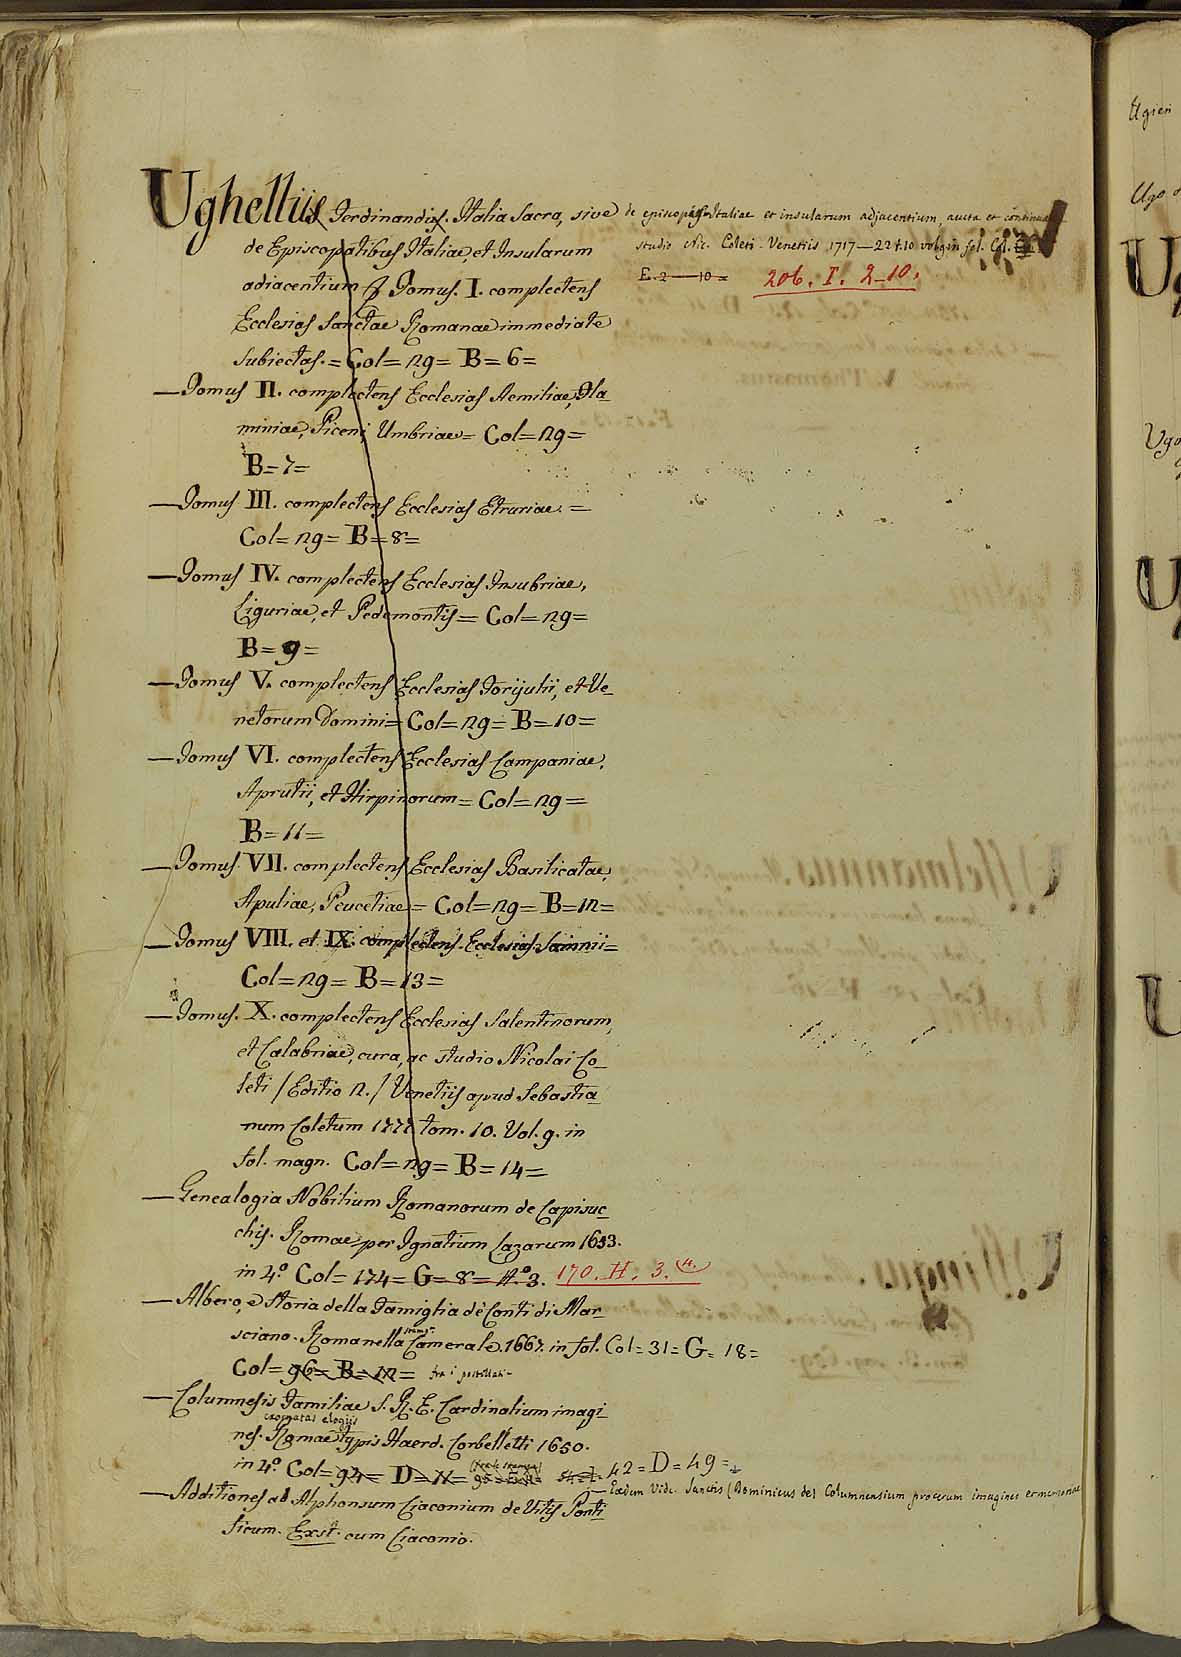 Ughellius Ferdinandus. Italia Sacra, sive de episcopis Italiae et insularum adjacentium, aucta et continuata
de Episcopatibus Italiae, et Insularum studio Nic. Coleti. Venetiis 1717—22 t. 10 vol. 9 in fol. Col.
adiacentium Tomus. I. complectens E. 2—10= 206. I. 2-10.
Ecclesias Sanctae Romanae immediate
subiectas. = Col= 29= B= 6=
—Tomus II. complectens Ecclesias Aemiliae, Fla-
miniae, Piceni, Umbriae= Col= 29=
B= 7=
—Tomus III. complectens Ecclesias Etruriae. =
Col= 29= B= 8=
—Tomus IV. complectens Ecclesias Insubriae,
Liguriae, et Pedemontis= Col= 29=
B= 9=
—Tomus V. complectens Ecclesias Forijulii, et Ve-
netorum Domini= Col= 29= B= 10=
—Tomus VI. complectens Ecclesias Campaniae,
Aprutii, et Hirpinorum= Col= 29=
B= 11=
—Tomus. VII. complectens Ecclesias Basilicatae,
Apuliae, Peucetiae= Col= 29= B= 12=
—Tomus VIII. et IX. complectens Ecclesias Samnii=
Col= 29= B= 13=
—Tomus. X. complectens Ecclesias Salentinorum,
et Calabriae, cura, ac studio Nicolai Co-
leti /Editio 2./ Venetiis apud Sebastia-
num Coletum 1722 tom. 10. Vol. 9. in
fol. magn. Col= 29= B= 14=
—Genealogia Nobilium Romanorum de Capisuc-
chis. Romae per Ignatium Lazarum 1653.
in 4.° Col= 174= G= 8= n.° 3. 170. H. 3.
—Albero, e Storia della Famiglia de' Conti di Mar-
sciano. Romanella stamp. Camerale. 1667. in fol. Col= 31= G= 18=
Col= 96= B= 12= fra i postillati-
—Columnesis Familiae S. R. E. Cardinalium imagi-
nes. exornatas elogiis Romae typis Haerd. Corbelletti 1650.
in 4.° Col= 94= D= 42= D= 49=
—Eadem Vide Sanctis (Dominicus de) Columnensium procerum imagines et memoriae
—Additiones ad Alphonsum Ciaconium de Vitis Ponti-
ficum. Exst. cum Ciaconio.
Ugieri
Ugo
Ugo